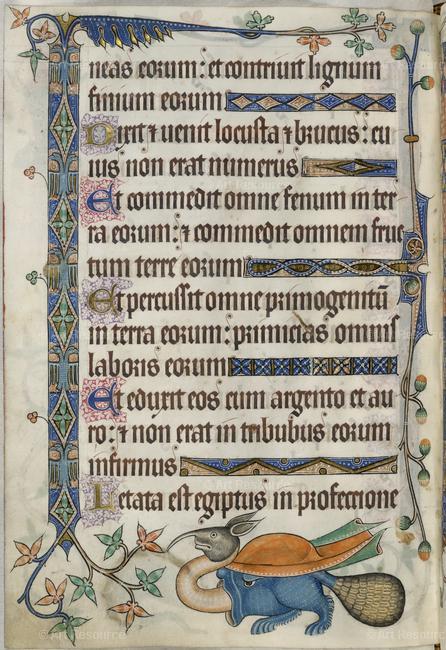 neas eorum: et contriuit lignum
finium eorum
Dixit ⁊ uenit locusta ⁊ brucus: cu
ius non erat numerus
Et commedit omne fenum in ter
ra eorum: ⁊ commedit omnem fruc
tum terre eorum
Et percussit omne primogenitū
in terra eorum: primicias omnis
laboris eorum
Et eduxit eos cum argento et au
ro: ⁊ non erat in tribubus eorum
infirmus
Letata est egiptus in profeccione
© Art Resource
© Art Resource
© Art Resource